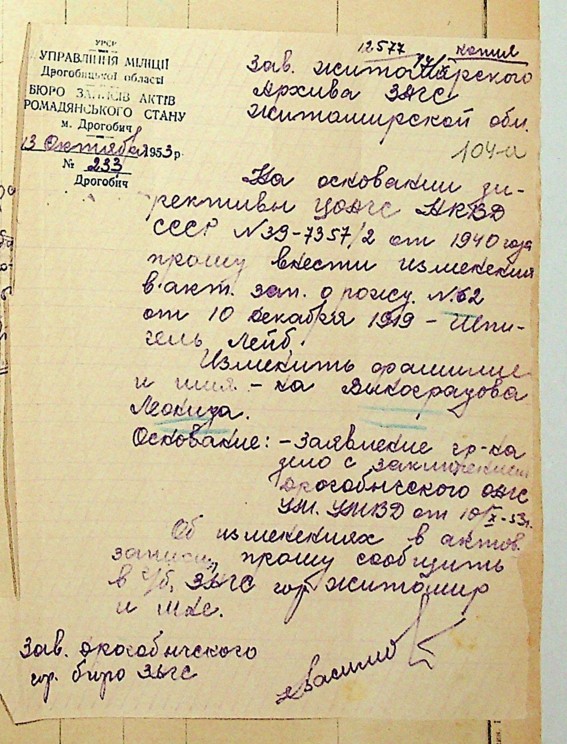 12577
копия
УРСР
УПРАВЛІННЯ МІЛІЦІЇ
Дрогобицької області
БЮРО ЗАПИСІВ АКТІВ
ГРОМАДЯНСЬКОГО СТАНУ
м. Дрогобич
13 Октября 1953 р.
№ 233
Дрогобич
Зав. житомирского
Архива ЗАГС
житомирской обл.
104-а
На основании ди-
рективы ЦОАГС НКВД
СССР №39-7357/2 от 1940 года
прошу внести изменения
в акт. зап. о рожд. №62
от 10 декабря 1919 - Шпи-
гель Лейб.
Изменить фамилию
и имя - на
Леонида.
Основание: - заявление гр-на
дело с заключением
дрогобычского ОАГС
УМ. УМВД от 10/X-53г.
Об изменениях в актов.
записи, прошу сообщить
в ЗАГС гор. Житомир
и мне.
Зав. дрогобычского
гор. бюро ЗАГС